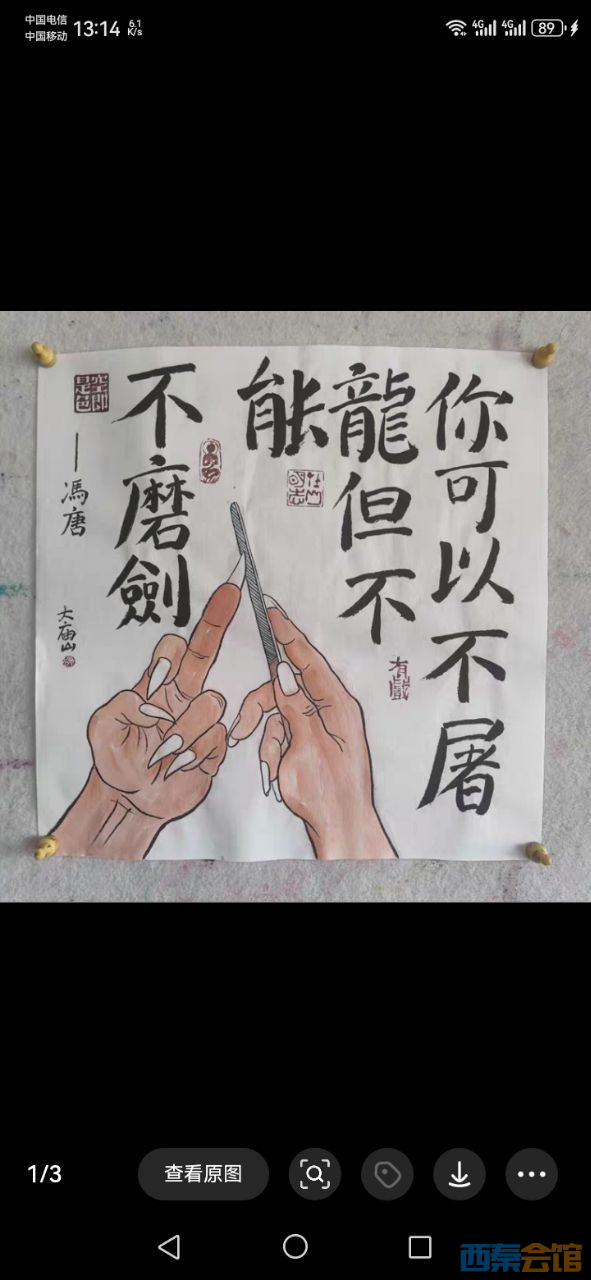 中国电信
中国移动
13:14
6.1
K/s
4G
4G
89
你可以不屠
龍但不
能
不磨劍
空即
是色
——馮唐
大庙山
有戲
1/3
查看原图
西秦会馆